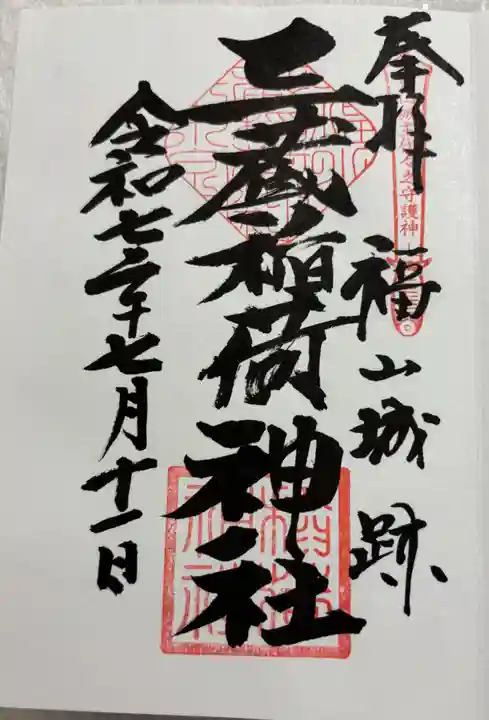 奉拝
福山城跡
之守護神
三蔵稲荷神社
令和七年七月十一日